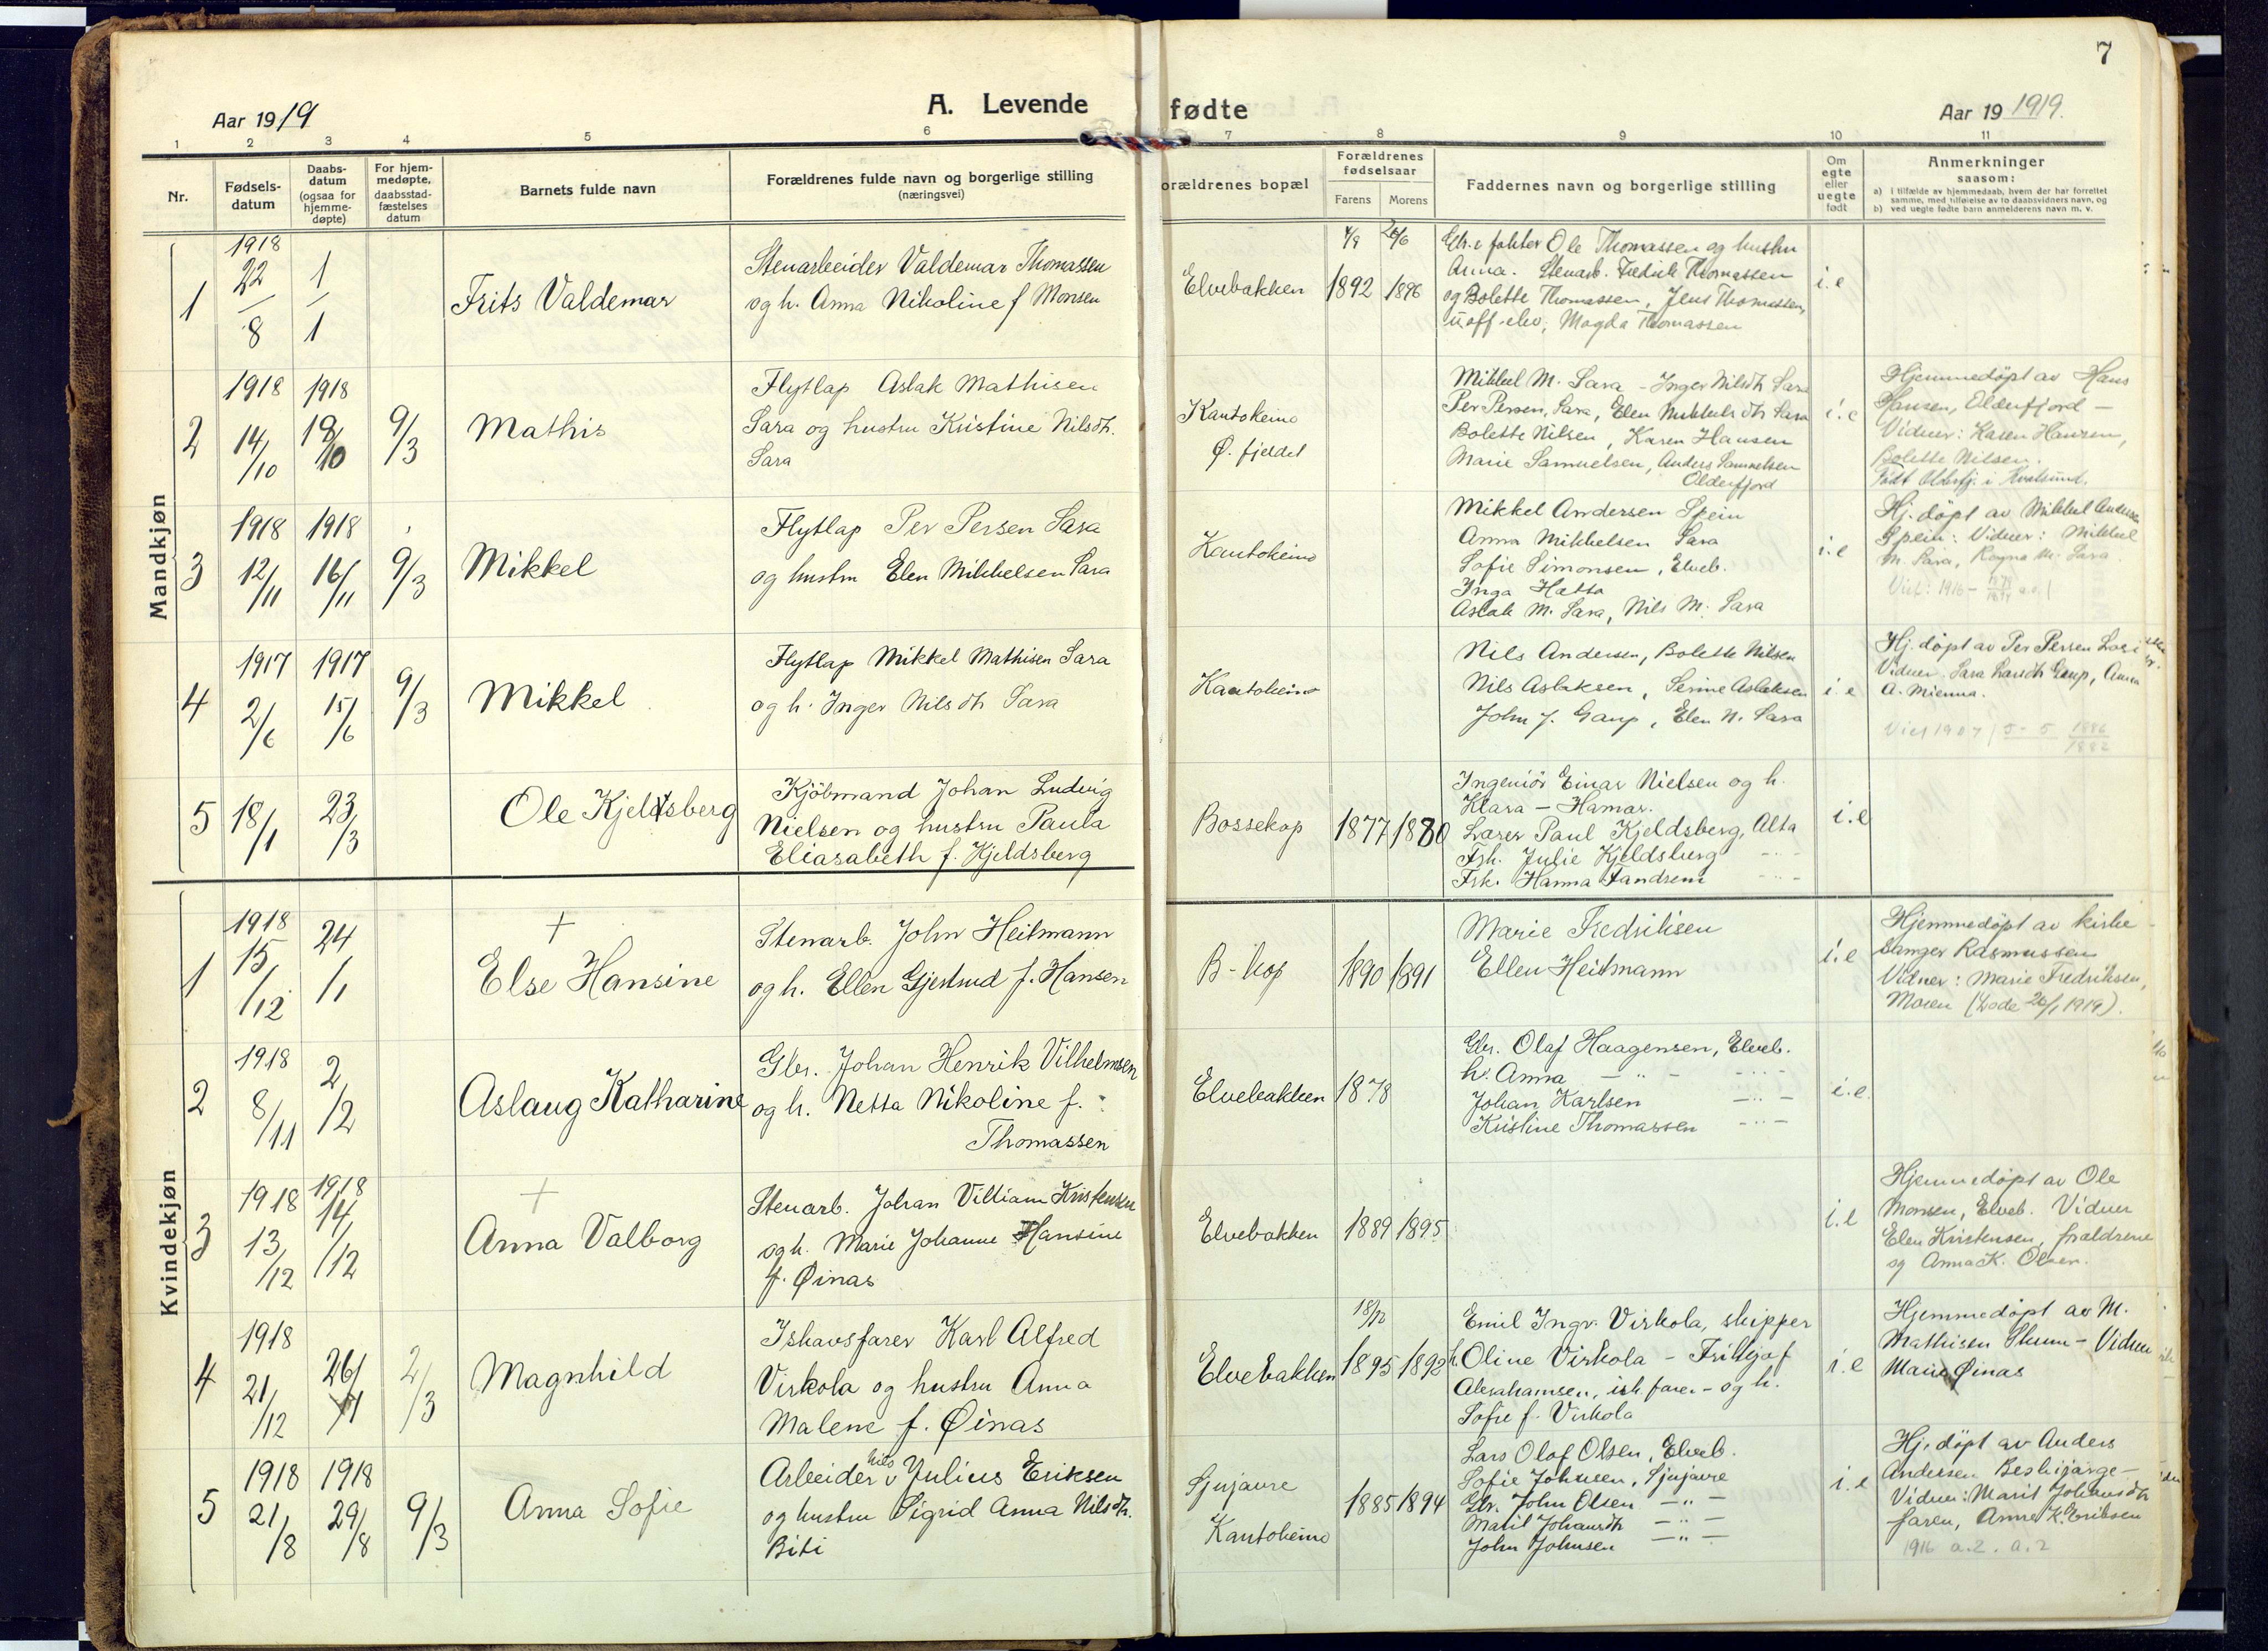 7
Aar 1919
A. Levende
fødte
Aar 19 1919.
1 2 3 4 5 6 7 8 9 10 11
Nr.
Fødsels-
datum
Daabs-
datum
(ogsaa for
hjemme-
døpte)
For hjem-
medøpte,
daabsstad-
fæstelses
datum
Barnets fulde navn
Forældrenes fulde navn og borgerlige stilling
(næringsvei)
orældrenes bopæl
Forældrenes
fødselsaar
Farens Morens
Faddernes navn og borgerlige stilling
Om
egte
eller
uegte
født
Anmerkninger
saasom:
a) i tilfælde av hjemmedaab, hvem der har forrettet
samme, med tilføielse av to daabsvidners navn, og
b) ved uegte fødte barn anmelderens navn m. v.
Mandkjøn
1
1918
22/8
1/1
Frits Valdemar
Stenarbeider Valdemar Thomassen
og h. Anna Nikoline f Monsen
Elvebakken
1892 1896
Ole Thomassen og hustru
Anna. Stenarb. Fredrik Thomassen
og Bolette Thomassen, Jens Thomassen,
uoff. elev, Magda Thomassen
i.e
2
1918 1918
14/10 18/10 9/3
Mathis
Flytlap Aslak Mathisen
Sara og hustru Kristine Nilsdtr.
Sara
Kautokeino
Ø. fjeldet
Mikkel M. Sara - Inger Nilsdtr Sara
Per Persen, Sara, Elen Mikkelsdtr Sara
Bolette Nilsen, Karen Hansen
Marie Samuelsen, Anders Samuelsen
Olderfjord
i.e
Hjemmedöpt av Hans
Hansen, Olderfjord -
Vidner: Karen Hansen,
Bolette Nilsen.
Födt Olderfj. i Kvalsund.
3
1918 1918
12/11 16/11 9/3
Mikkel
Flytlap Per Persen Sara
og hustru Elen Mikkelsen Sara
Kautokeino
Mikkel Andersen Spein
Anna Mikkelsen Sara
Sofie Simonsen, Elveb.
Inga Hætta
Aslak M. Sara, Nils M. Sara
i.e
Hj. döpt av Mikkel Andersen
Spein: Vidner: Mikkel
M. Sara, Ragna M. Sara
Viet: 1916 -
4
1917 1917
2/6 15/6 9/3
Mikkel
Flytlap Mikkel Mathisen Sara
og h. Inger Nilsdtr Sara
Kautokeino
Nils Andersen, Bolette Nilsen
Nils Aslaksen, Serine Aslaksen
John J. Gaup, Elen N. Sara
i e
Hj. döpt av Per Persen
Vidner. Sara Larsdtr Gaup, Anna
A. Mienna.
Viet 1907 / 5 - 5 1886
1882
5
18/1 23/3
Ole Kjeldsberg
Kjöbmand Johan Ludvig
Nielsen og hustru Paula
Eliasabeth f. Kjeldsberg
Bossekop
1877 1880
Ingeniör Einar Nielsen og h.
Klara - Hamar.
Lærer Paul Kjeldsberg, Alta
Frk. Julie Kjeldsberg - " -
Frk. Hanna Tandrem - " -
i.e
Kvindekjøn
1
1918
15/12 24/1
+
Else Hansine
Stenarb. John Heitmann
og h. Ellen Gjertrud f. Hansen
B-kop
1890 1891
Marie Fredriksen
Ellen Heitmann
i.e
Hjemmedöpt av kirke
sanger Rasmussen
Vidner: Marie Fredriksen,
Moren (Död 26/1 1919).
2
1918
8/11 2/2
Aslaug Katharine
Gbr. Johan Henrik Vilhelmsen
og h. Netta Nikoline f.
Thomassen
Elvebakken
1878
Gbr. Olaf Haagensen, Elveb.
h. Anna - " - - " -
Johan Karlsen - " -
Kristine Thomassen - " -
i.e.
3
1918 1918
13/12 14/12
+
Anna Valborg
Stenarb. Johan Villiam Kristensen
og h. Marie Johanne Hansine
f. Øinas
Elvebakken
1889 1895
i.e
Hjemmedöpt av Ole
Monsen, Elveb. Vidner
Elen Kristensen, forældrene
og Anna K. Olsen.
4
1918
21/12 26/1 2/3
Magnhild
Ishavsfarer Karl Alfred
Virkola og hustru Anna
Malene f. Øinas
Elvebakken
1895 1892
Emil Ingv. Virkola, skipper
h. Oline Virkola - Frithjof
Abrahamsen, ish. farer - og h.
Sofie f. Virkola
i.e
Hjemmedöpt av M.
Mathisen Skum - Vidner
Marie Øinas
5
1918 1918
21/8 29/8 9/3
Anna Sofie
Arbeider Nils Julius Eriksen
og hustru Sigrid Anna Nilsdtr.
Biti
Sjujavre
Kautokeino
1885 1894
Lars Olaf Olsen, Elveb.
Sofie Johnsen, Sjujavre
Gbr. John Olsen - " -
Marit Johansdtr - " -
John Johnsen - " -
i.e
Hj. döpt av Anders
Andersen Beskijarge -
Vidner: Marit Johansdtr
faren, Anne K. Eriksen
1916 a.2. a.2